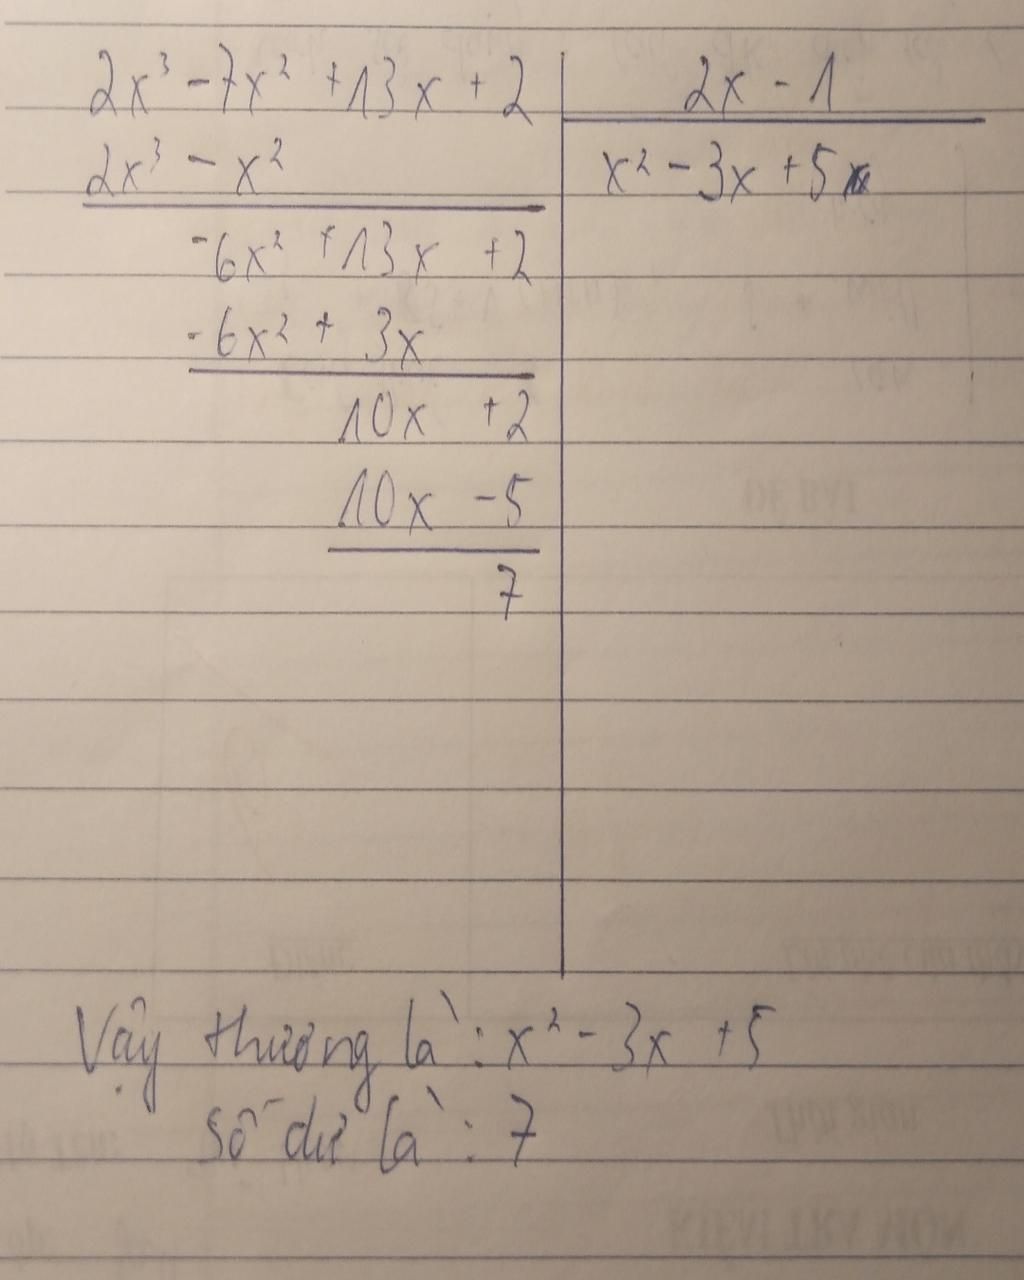 2x³ - 7x² + 13x + 2 | 2x - 1
2x³ - x² | x² - 3x + 5
-6x² + 13x + 2
-6x² + 3x
10x + 2
10x - 5
7
Vậy thương là: x² - 3x + 5
số dư là: 7